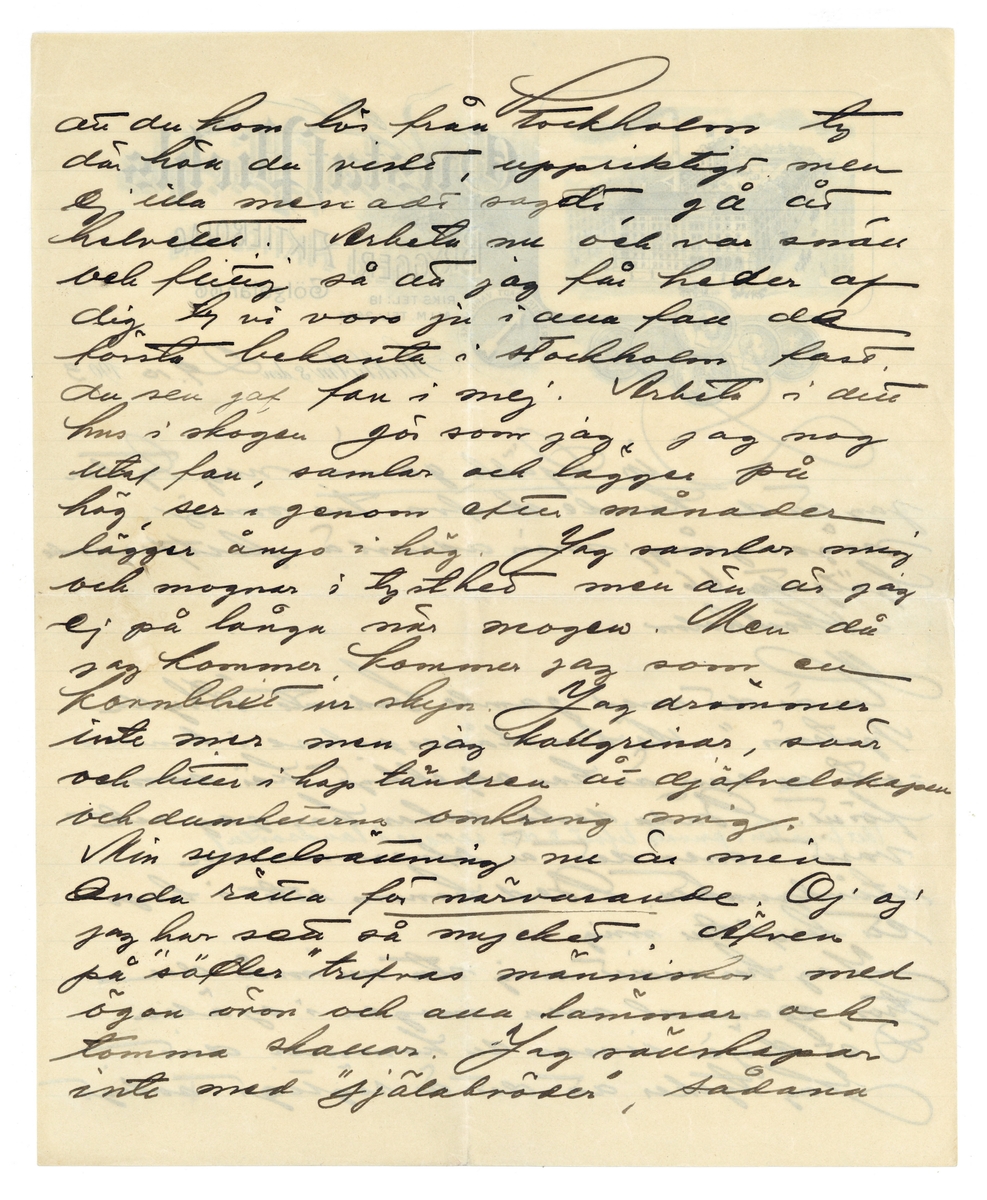 att du kom lös från Stockholm ty
där höll du visst, uppriktigt men
ej illa menadt sagdt, gå åt
helvetet. Arbeta nu och var snäll
och flitig så att jag får heder af
dig, ty vi voro ju i alla fall de
första bekanta i Stockholm fast
du sen gaf fan i mej. Arbeta i ditt
hus i skogen gör som jag, jag nog
utaf fan, samlar och lägger på
hög, ser i genom efter månader
lägger ånyo i hög. Jag samlar mig
och mognar i tysthet men än är jag
ej på långa när mogen. Men då
jag kommer, kommer jag som en
kornblixt ur skyn. Jag drömmer
inte mer men jag kallgrinar, svär
och biter i hop tändren åt djäfvelskapen
och dumheterna omkring mig.
Min sysselsättning nu är min
enda rätta för närvarande. Oj oj
jag har sett så mycket. Äfven
på "sötller" trifvas människor med
ögon öron och alla lammar och
tomma skallar. Jag sällskapar
inte med "själabröder", sådana